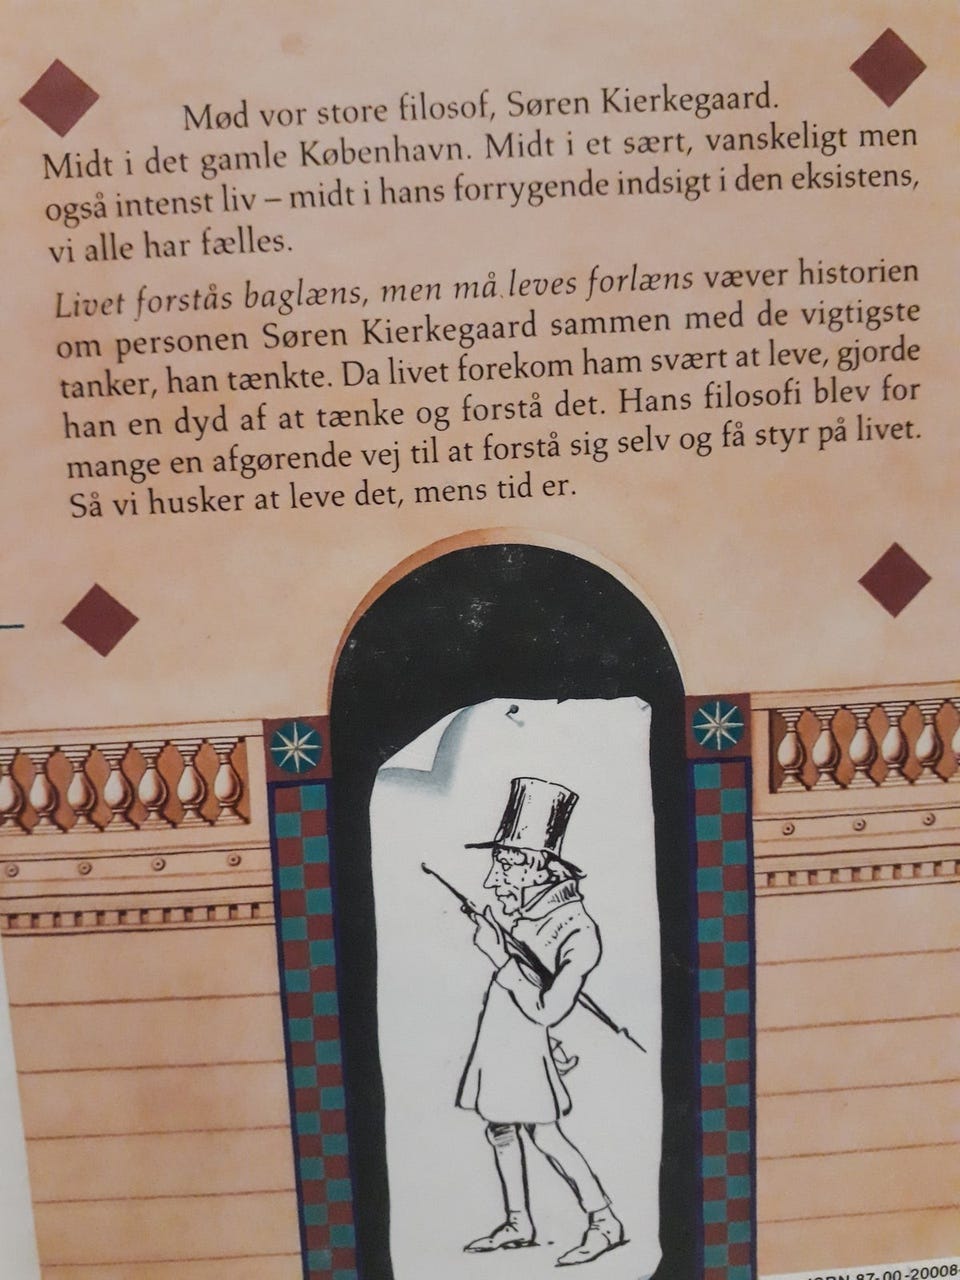 Mød vor store filosof, Søren Kierkegaard.
Midt i det gamle København. Midt i et sært, vanskeligt men
også intenst liv – midt i hans forrygende indsigt i den eksistens,
vi alle har fælles.
Livet forstås baglæns, men må leves forlæns væver historien
om personen Søren Kierkegaard sammen med de vigtigste
tanker, han tænkte. Da livet forekom ham svært at leve, gjorde
han en dyd af at tænke og forstå det. Hans filosofi blev for
mange en afgørende vej til at forstå sig selv og få styr på livet.
Så vi husker at leve det, mens tid er.
ISBN 87-00-20008-